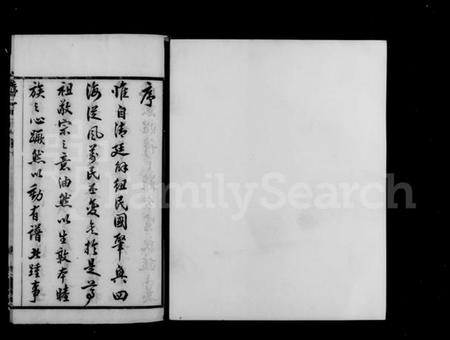 序
惟自清廷解紐民國肇興四
海從風萬民丕變於是尊
祖敬宗之意油然以生敦本睦
族之心蹶然以動有譜者踵事
FamilySearch